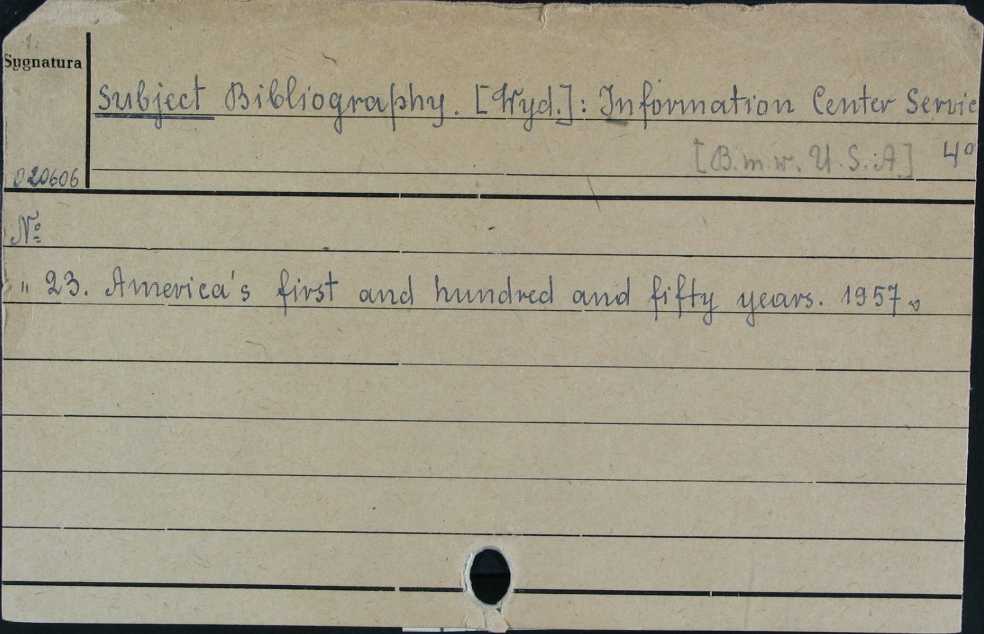 Sygnatura
Subject Bibliography. [Wyd.]: Information Center Servic
[B.m.w. U.S.A] 4º
020606
Nº
" 23. America's first and hundred and fifty years. 1957.